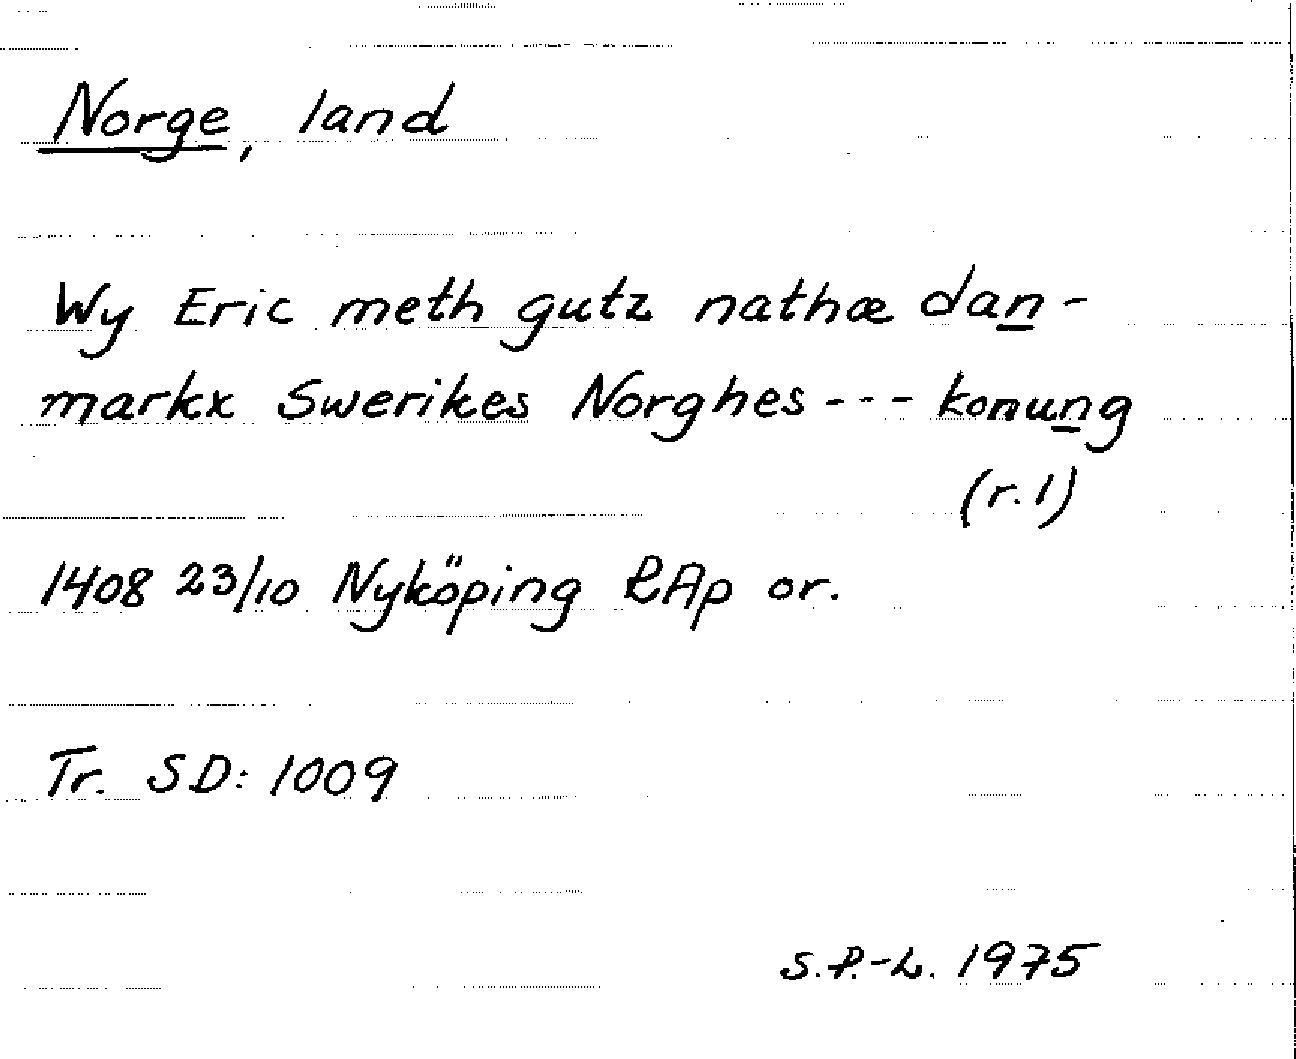 Norge, land
Wy Eric meth gutz nathæ dan-
markx Swerikes Norghes --- konung
(r. 1)
1408 23/10 Nyköping RAp or.
Tr. SD: 1009
S.P.-L. 1975